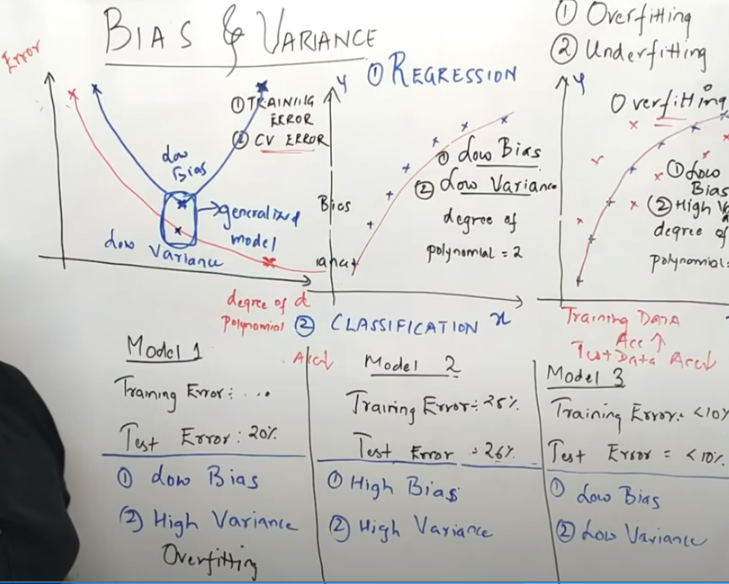 BIAS & VARIANCE
① Overfitting
② Underfitting
Error
① TRAINING ERROR
② CV ERROR
Low Bias
generalized model
Low Variance
degree of polynomial
y
① REGRESSION
① Low Bias
② Low Variance
degree of
polynomial = 2
Bias
x
② CLASSIFICATION
y
Overfitting
① Low Bias
② High
degree of
polynomial =
Training DATA
Acc ↑
Test Data Acc ↓
Model 1
Training Error : ...
Test Error : 20%
① Low Bias
② High Variance
Overfitting
Acc ↓
Model 2
Training Error : 25%
Test Error : 26%
① High Bias
② High Variance
Model 3
Training Error = <10%
Test Error = <10%
① Low Bias
② Low Variance